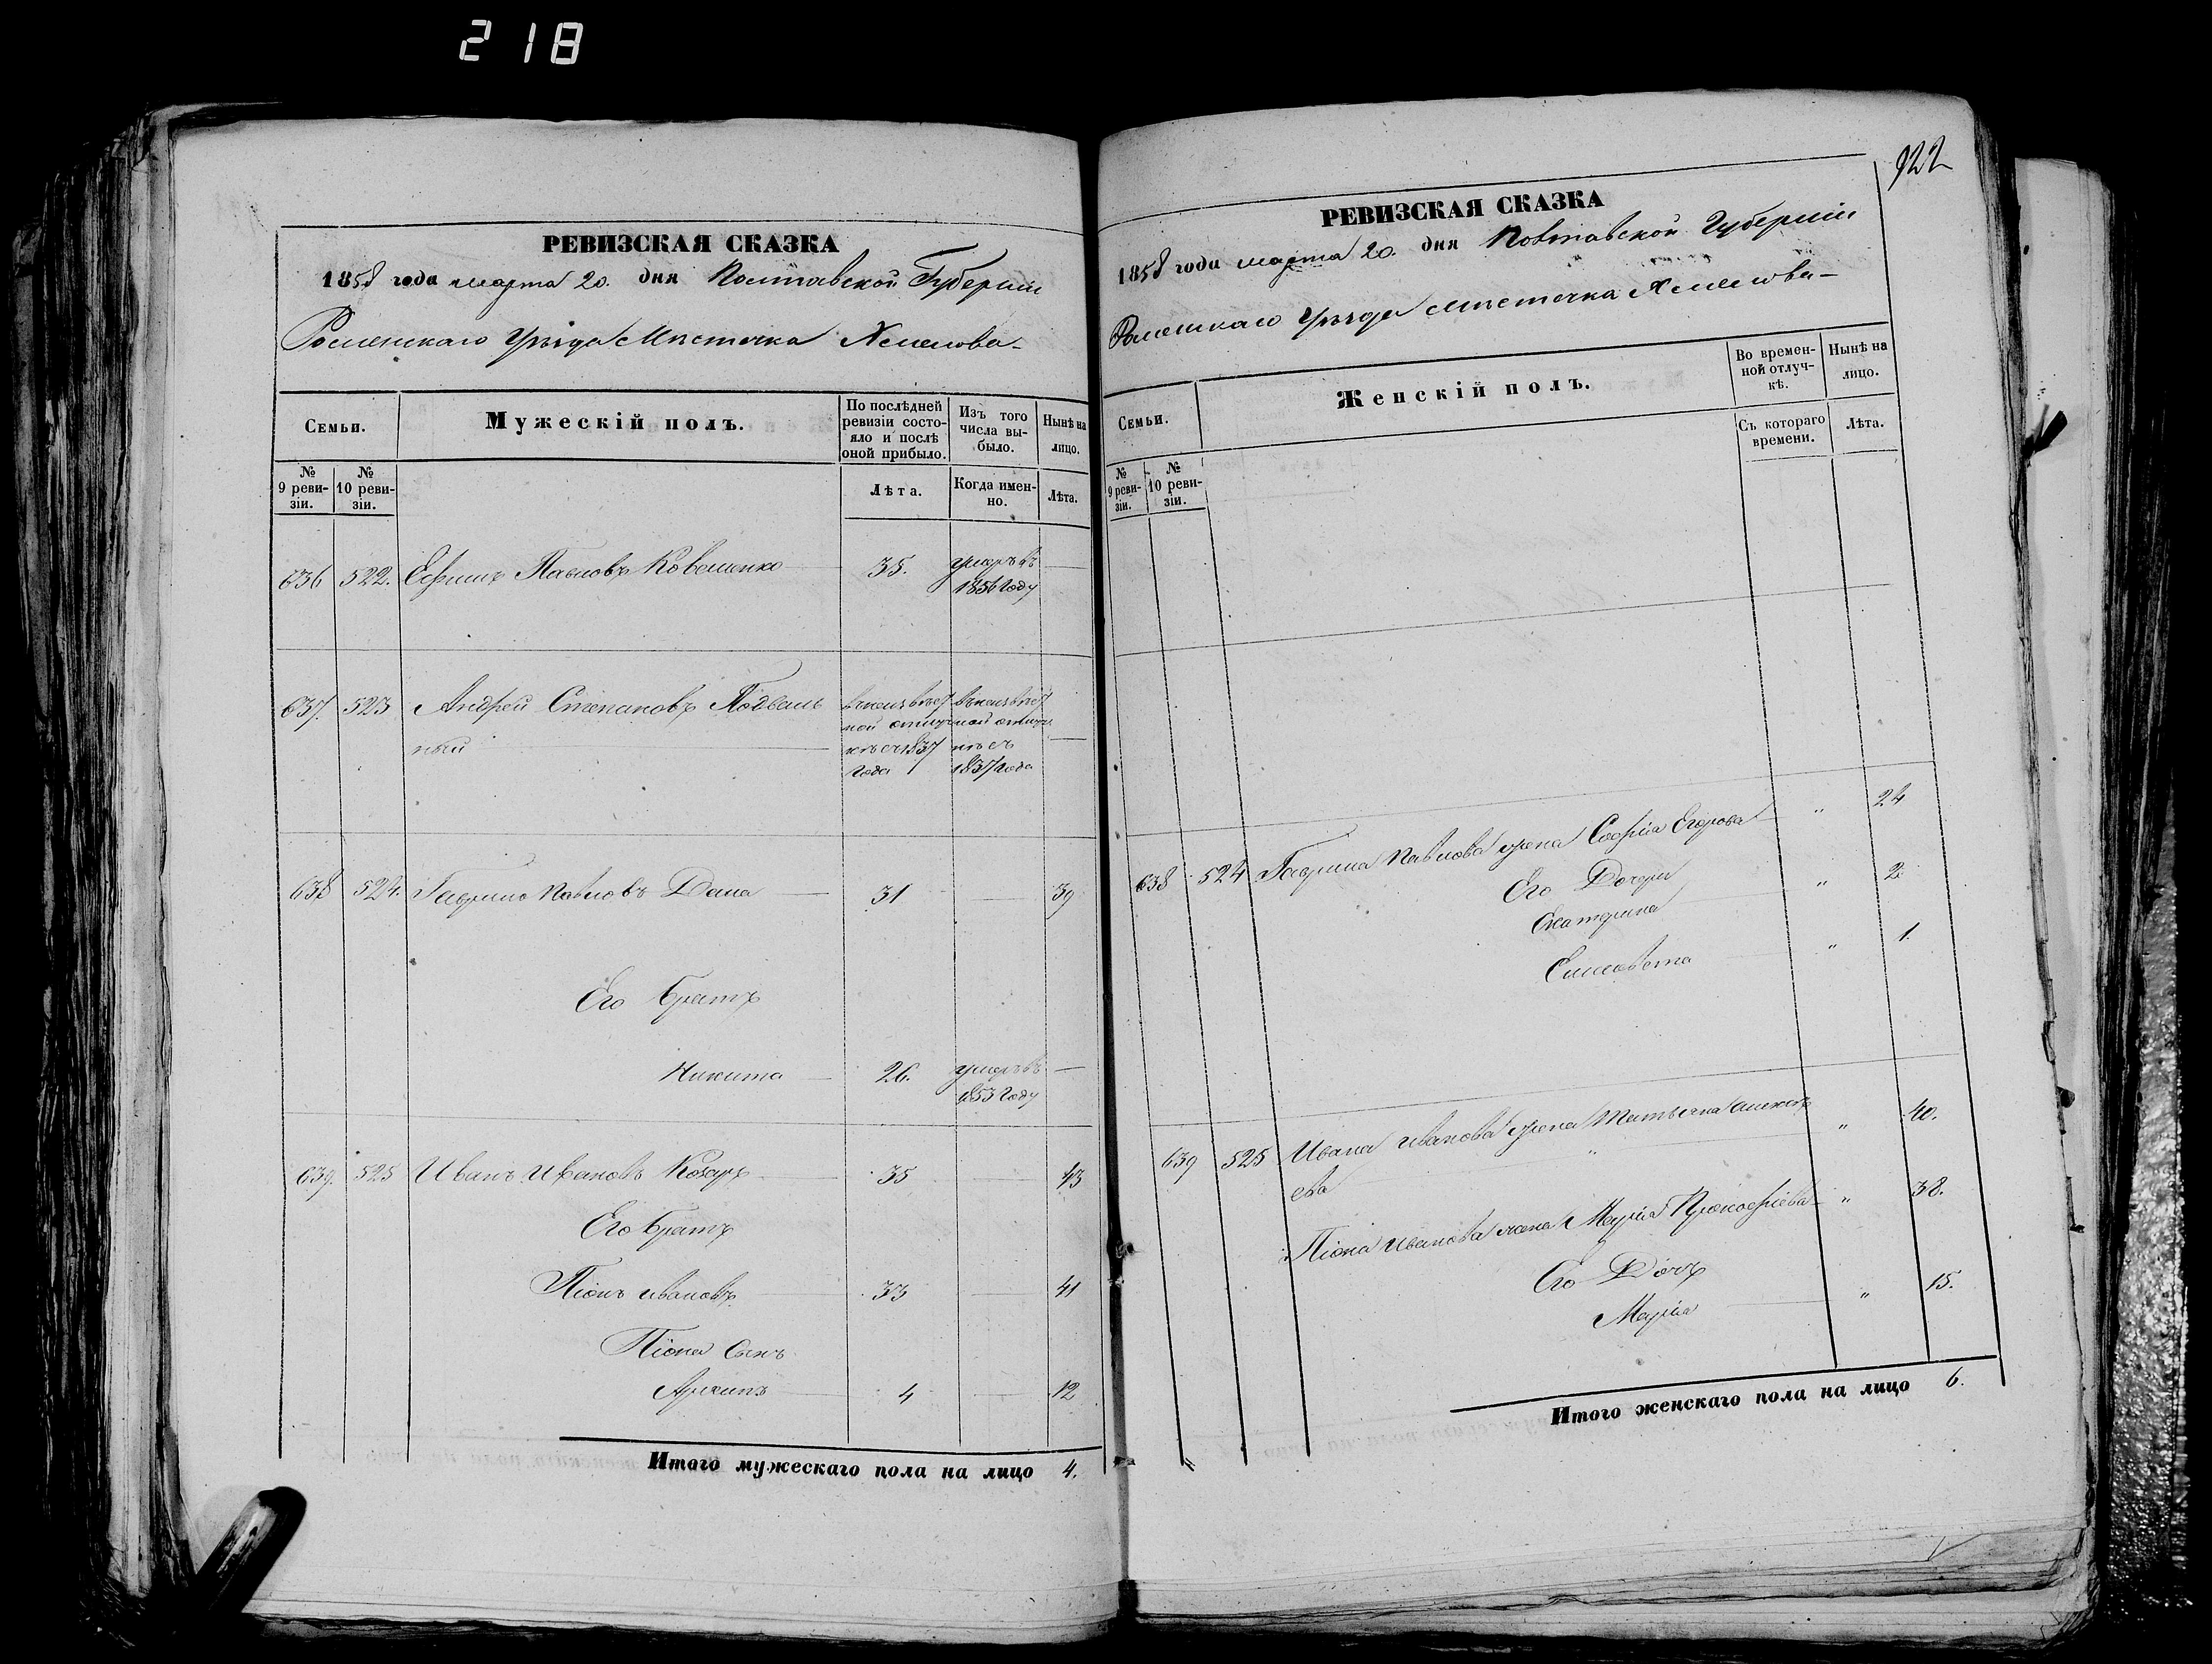 218
РЕВИЗСКАЯ СКАЗКА
1858 года марта 20. дня Полтавской Губернии
Роменскаго Уѣзда Мѣстечка Хмелова-
Семьи.
Мужескій полъ.
По послѣдней ревизіи состояло и послѣ оной прибыло.
Изъ того числа выбыло.
Нынѣ на лицо.
№ 9 ревизіи.
№ 10 ревизіи.
Лѣта.
Когда именно.
Лѣта.
636 522. Ефимъ Павловъ 35. умеръ въ
1856 году
637. 523 Андрей Степановъ
ный
кѣ съ 1837 кѣ съ
года 1837 года
638 524. Гаврило Павловъ 31 39
Его братъ
Никита 26. умеръ въ
1853 году
639. 525 Иванъ Ивановъ 35 43
Его братъ
Піонъ Ивановъ 33 41
Піона Сынъ
Архипъ 4 12
Итого мужескаго пола на лицо 4.
922
РЕВИЗСКАЯ СКАЗКА
1858 года марта 20. дня Полтавской Губерніи
Роменскаго Уѣзда мѣстечка Хмелова-
Семьи.
Женскій полъ.
Во временной отлучкѣ.
Нынѣ на лицо.
№ 9 ревизіи.
№ 10 ревизіи.
Съ котораго времени.
Лѣта.
638 524 Гаврила Павлова жена Софія Егорова " 24
Его Дочери
Екатерина " 2.
Елисавета " 1.
639 525 Ивана Иванова жена Татьяна Алексѣ
ева " 40.
Піона Иванова жена Марія Прокофіева " 38.
Его Дочь
Марія " 15.
Итого женскаго пола на лицо 6.